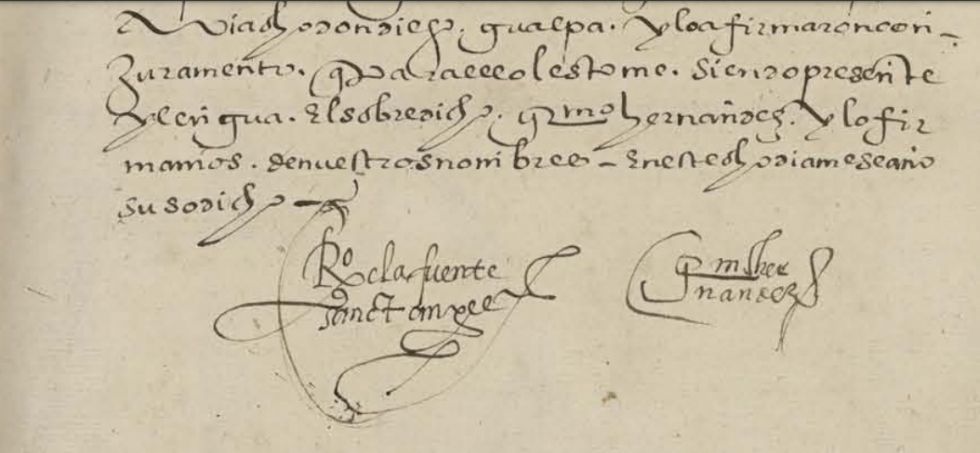 dho don diego. gualpa. y lo afirmaron con
Juramento. q Para ello les tome. siendo presente
y lengua. El sobredicho. grmo hernandez. y lo fir
mamos. de nuestros nombres – En este dho dia mes e año
susodicho
Ro de la fuente
Sanct angel
grmo her
nandez